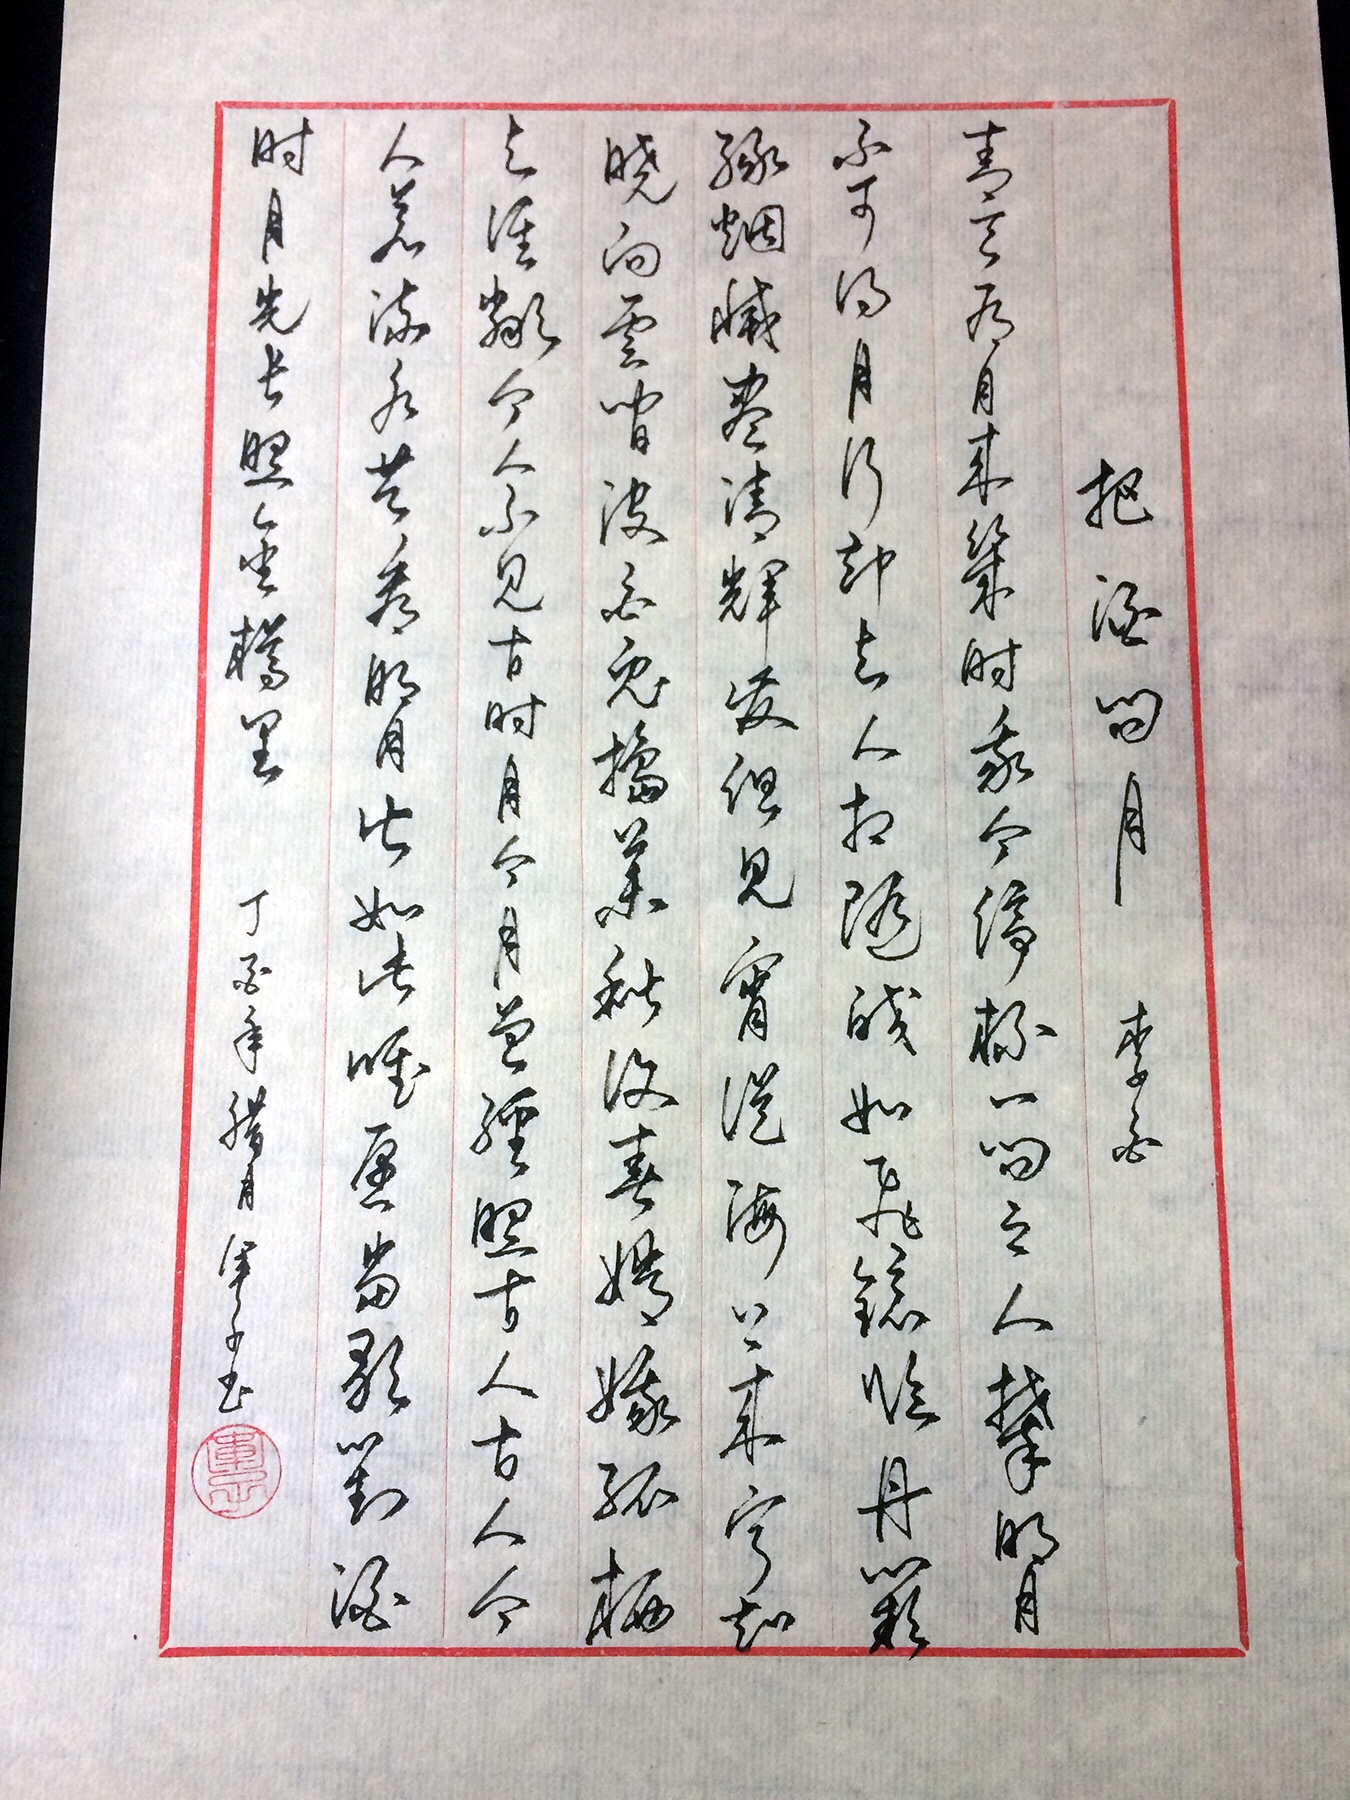 把酒问月 李白
青天有月来幾时我今停杯一问之人攀明月
不可得月行却与人相随皎如飛鏡临丹闕
緑烟滅盡清輝发但見宵從海上来宁知
晓向雲间没白兔擣薬秋復春嫦娥孤栖
与谁鄰今人不見古时月今月曾經照古人古人今
人若流水共看明月皆如此唯愿当歌對酒
时月光长照金樽里 丁酉年腊月